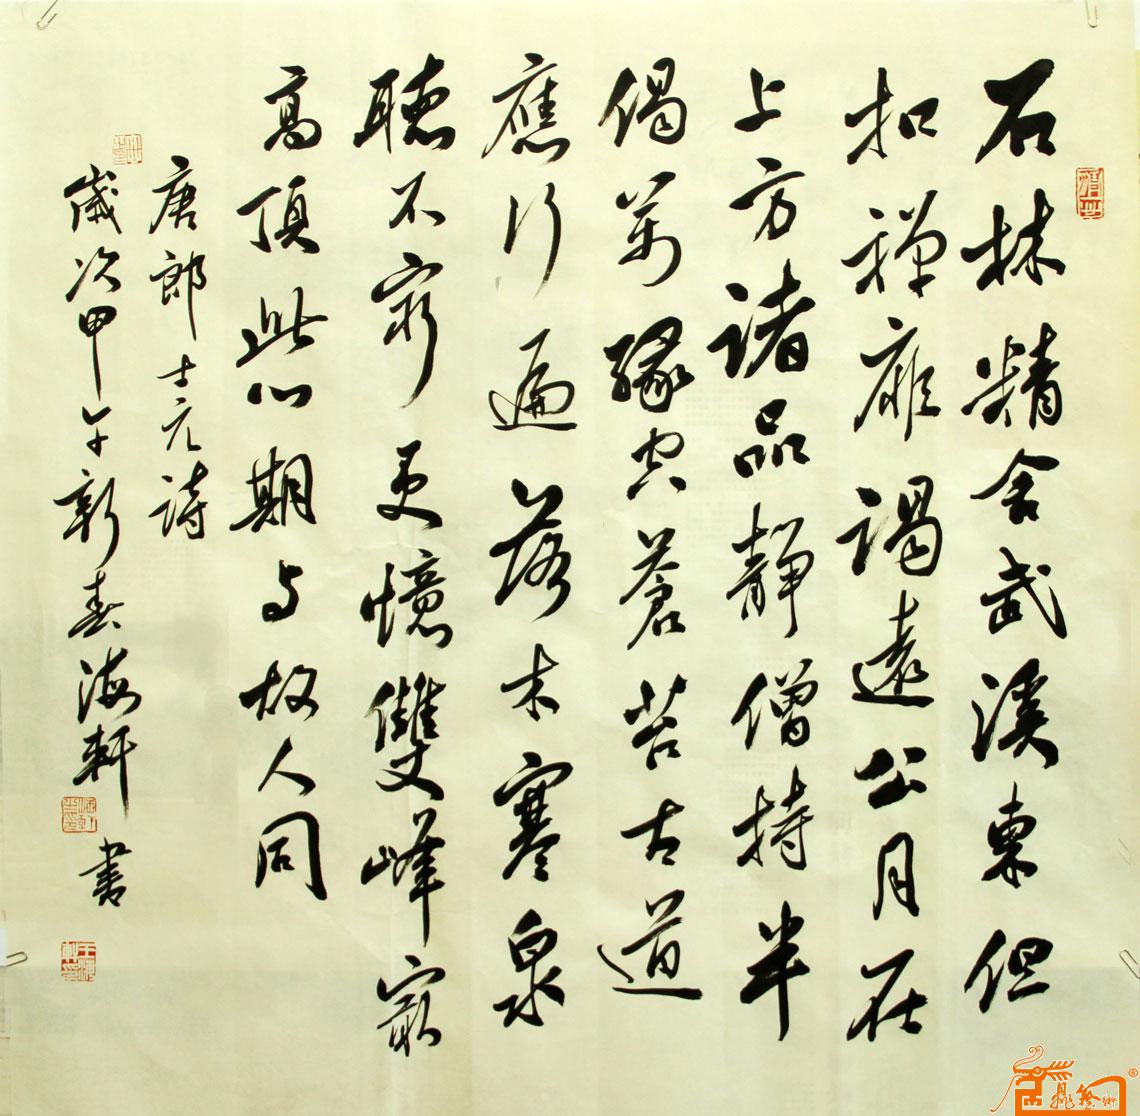 石林精舍武溪東但
扣禪扉謁遠公月在
上方諸品靜僧持半
偈萬緣空蒼苔古道
應行遍落木寒泉
聽不窮更憶雙峰最
高頂此心期與故人同
唐郎士元詩
歲次甲午新春海軒書